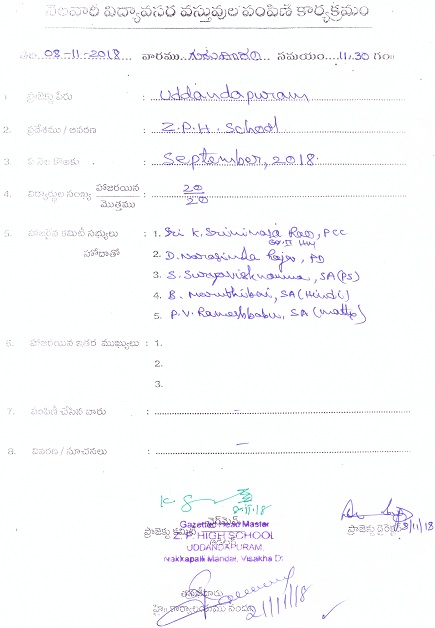 నెలవారీ విద్యావసర వస్తువుల పంపిణీ కార్యక్రమం
08-11-2018 వారము గురువారం సమయం 11.30 గం॥
1. ప్రాజెక్టు పేరు : Uddandapuram
2. ప్రదేశము / ఆవరణ : Z.P.H. School
3. ఏ నెల కొఱకు : September, 2018.
4. విద్యార్థుల సంఖ్య హాజరయిన 20
మొత్తము 20
5. హాజరైన కమిటీ సభ్యులు : 1. Sri K. Srinivasa Rao, PCC
Gr. II HM
హోదాతో 2. D. Narasinga Rajee, PD
3. S. Suryavishnamma, SA (PS)
4. B. SA (Hindi)
5. P.V. Rameshbabu, SA (maths)
6. హాజరయిన ఇతర ముఖ్యులు : 1.
2.
3.
7. పంపిణీ చేసిన వారు : -
8. వివరణ / సూచనలు : -
8-11-18
ప్రాజెక్టు కమిటీ ఛైర్మన్
Gazetted Head Master
Z. P HIGH SCHOOL
UDDANDAPURAM,
Nakkapalli Mandal, Visakha Dt
8/11/18
ప్రాజెక్టు డైరెక్టర్
21/11/18